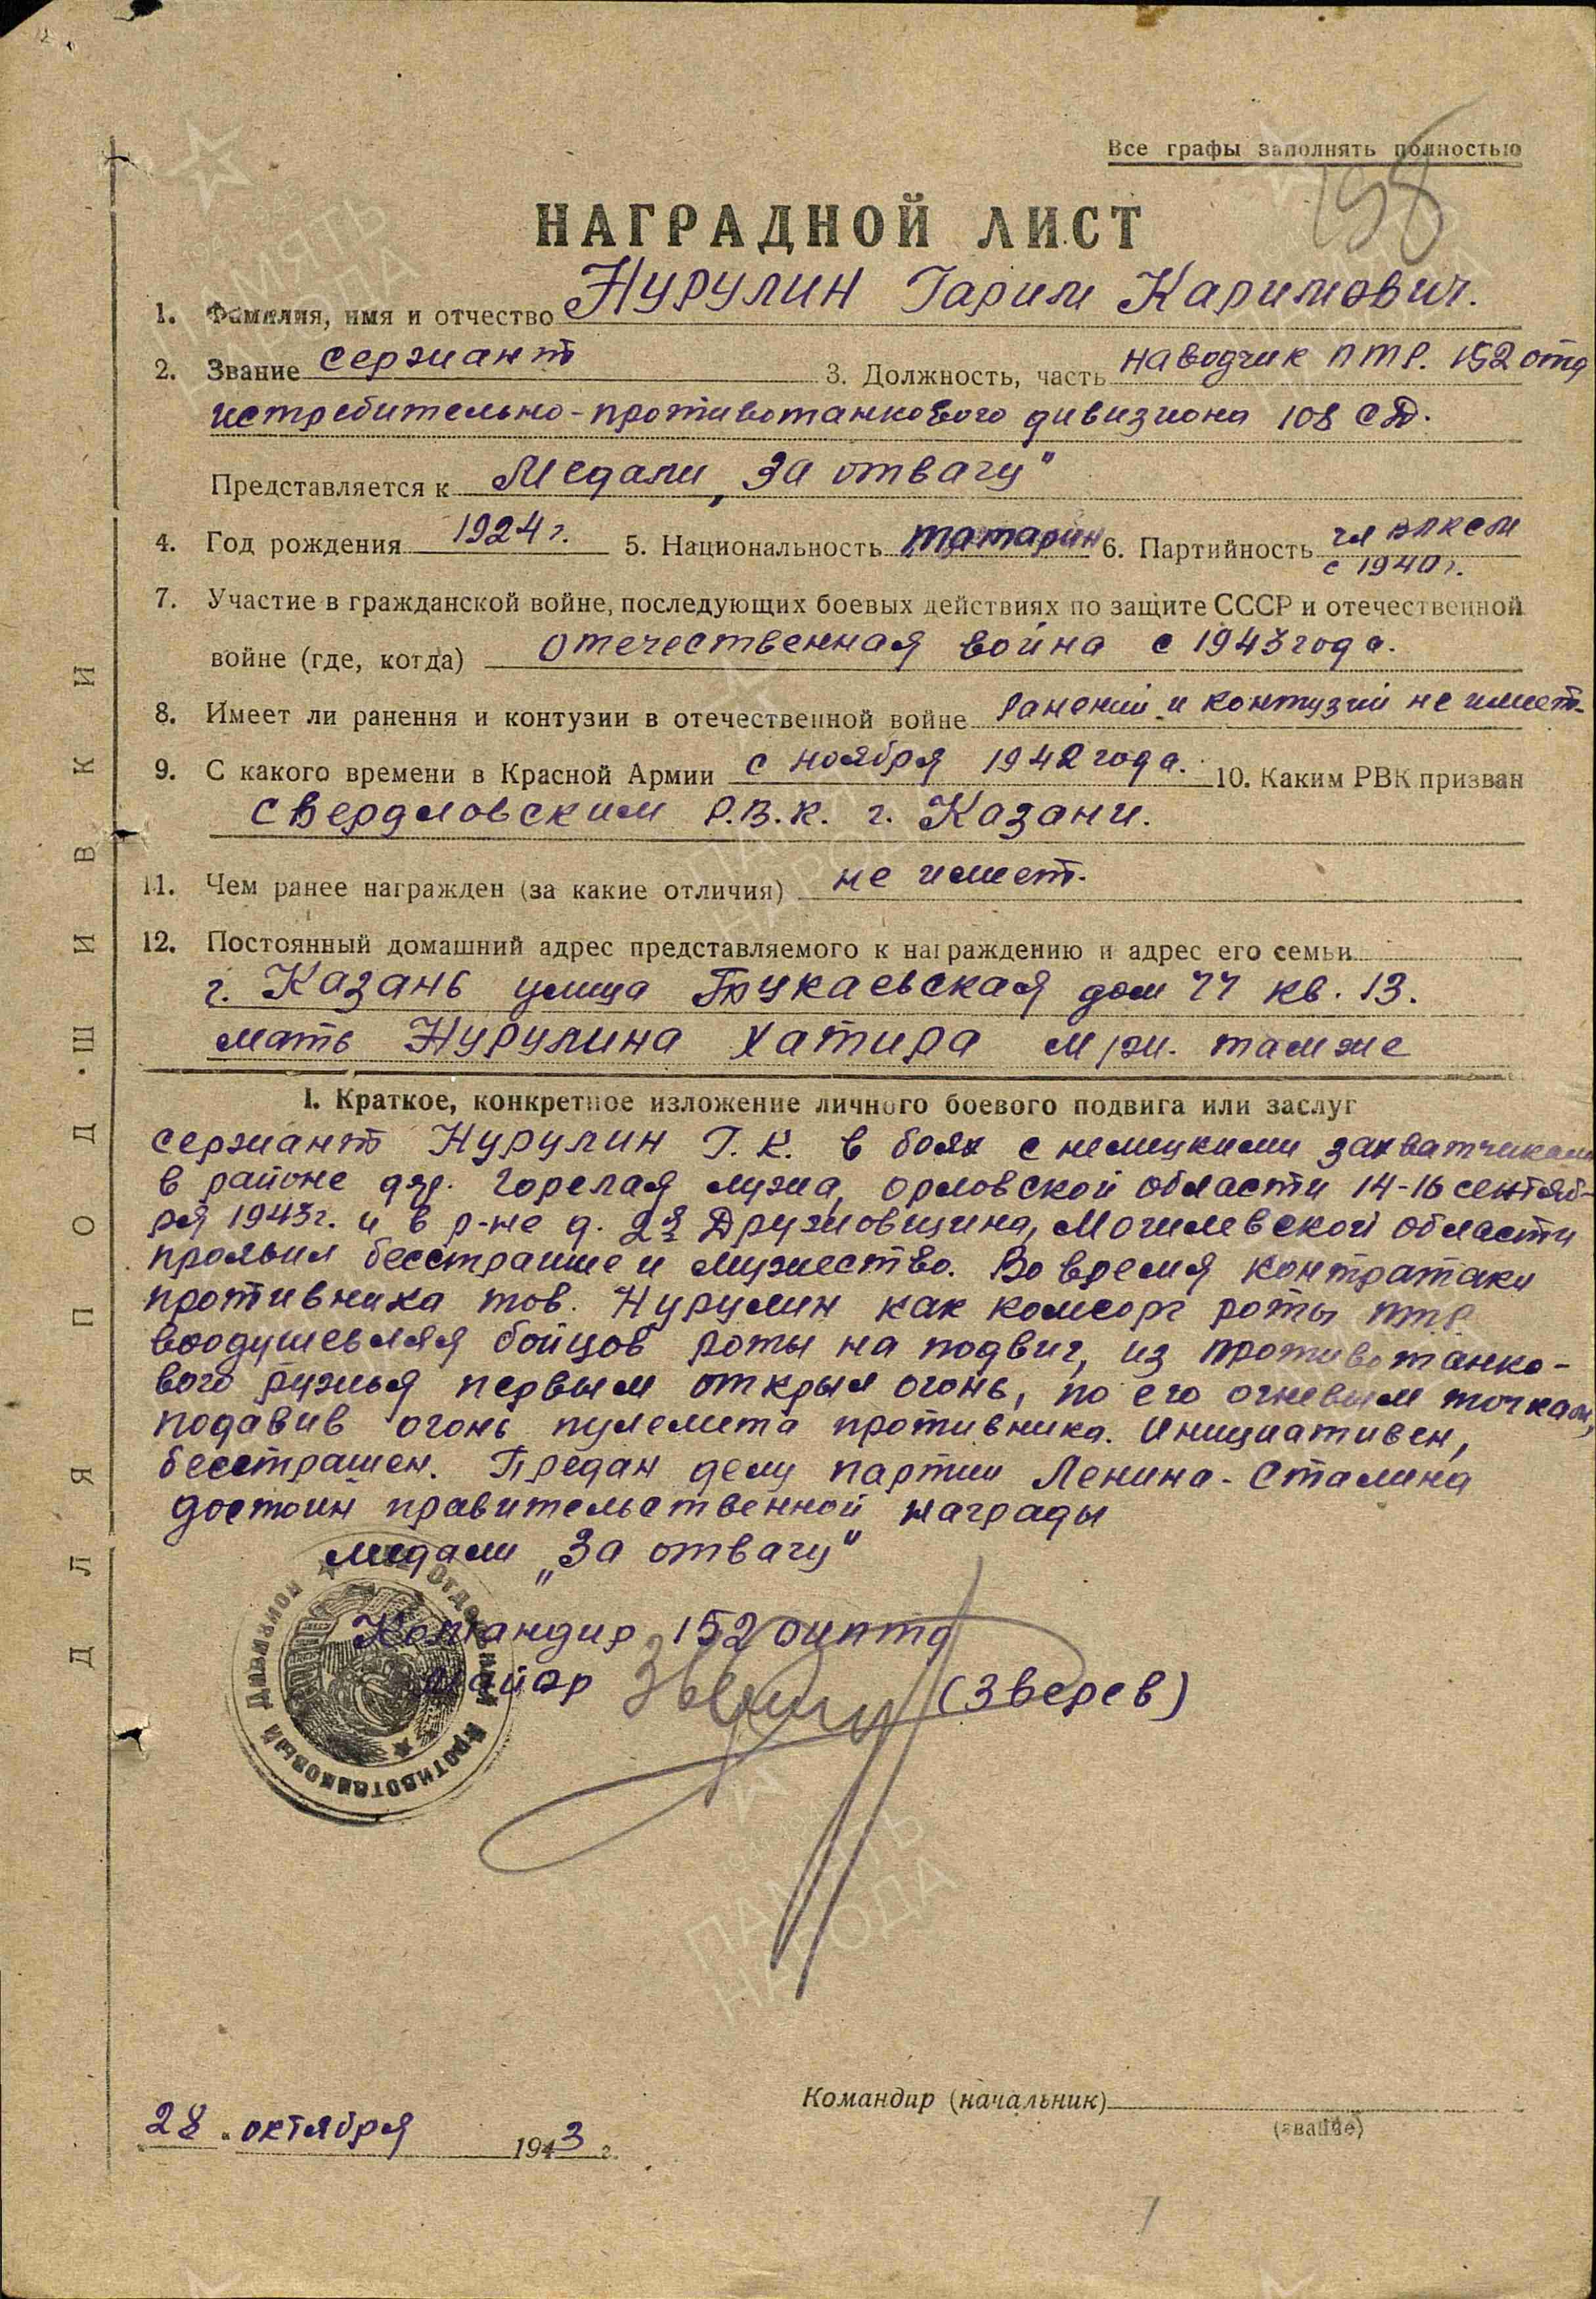 Все графы заполнять полностью
198
НАГРАДНОЙ ЛИСТ
1. Фамилия, имя и отчество Нурулин Гарим Каримович.
2. Звание сержант 3. Должность, часть наводчик ПТР. 152 отд
истребительно-противотанкового дивизиона 108 СД.
Представляется к Медали „За отвагу"
4. Год рождения 1924 г. 5. Национальность татарин 6. Партийность чл ВЛКСМ
с 1940 г.
7. Участие в гражданской войне, последующих боевых действиях по защите СССР и отечественной
войне (где, когда) отечественная война с 1943 года.
8. Имеет ли ранення и контузии в отечественной войне ранений и контузий не имеет.
9. С какого времени в Красной Армии с ноября 1942 года. 10. Каким РВК призван
Свердловским Р.В.К. г. Казани.
11. Чем ранее награжден (за какие отличия) не имеет.
12. Постоянный домашний адрес представляемого к награждению и адрес его семьи
г. Казань улица дом 77 кв. 13.
мать Нурулина Хатира там же
I. Краткое, конкретное изложение личного боевого подвига или заслуг
сержант Нурулин Г. К. в боях с немецкими захватчиками
в районе дер. Горелая лужа, Орловской области 14-16 сентяб-
ря 1943 г. и в р-не д. 2я Дружовщина, Могилевской области
проявил бесстрашие и мужество. Во время контратаки
противника тов. Нурулин как комсорг роты ПТР
воодушевляя бойцов роты на подвиг, из противотанко-
вого ружья первым открыл огонь, по его огневым точкам,
подавив огонь пулемета противника. Инициативен,
бесстрашен. Предан делу партии Ленина-Сталина
достоин правительственной награды
медали „За отвагу"
Командир 152 оиптд
майор Зверев (Зверев)
Отдельный Противотанковый Дивизион
28 октября 1943 г.
Командир (начальник)
(звание)
ДЛЯ ПОДШИВКИ
ПАМЯТЬ НАРОДА